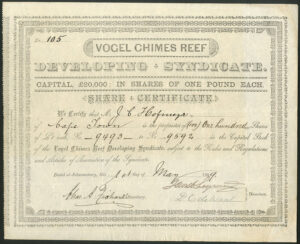 No. 105
VOGEL CHIMES REEF
DEVELOPING SYNDICATE.
CAPITAL, £20,000, IN SHARES OF ONE POUND EACH.
SHARE CERTIFICATE.
We Certify that J. C. Hofmeyr
of Cape Town is the proprietor of One hundred Shares
of £1 each No. 9493 to No. 9592 in the Capital Stock
of the Vogel Chimes Reef Developing Syndicate, subject to the Rules and Regulations
and Articles of Association of the Syndicate.
Dated at Johannesburg, this 1st day of May
Secretary.
Directors.